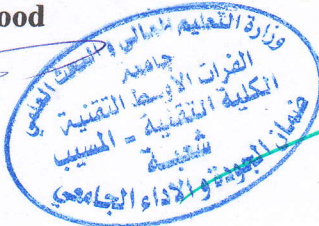 ood
وزارة التعليم العالي و البحث العلمي
جامعة
الفرات الأوسط التقنية
الكلية التقنية - المسيب
شعبة
ضمان الجودة و الاداء الجامعي